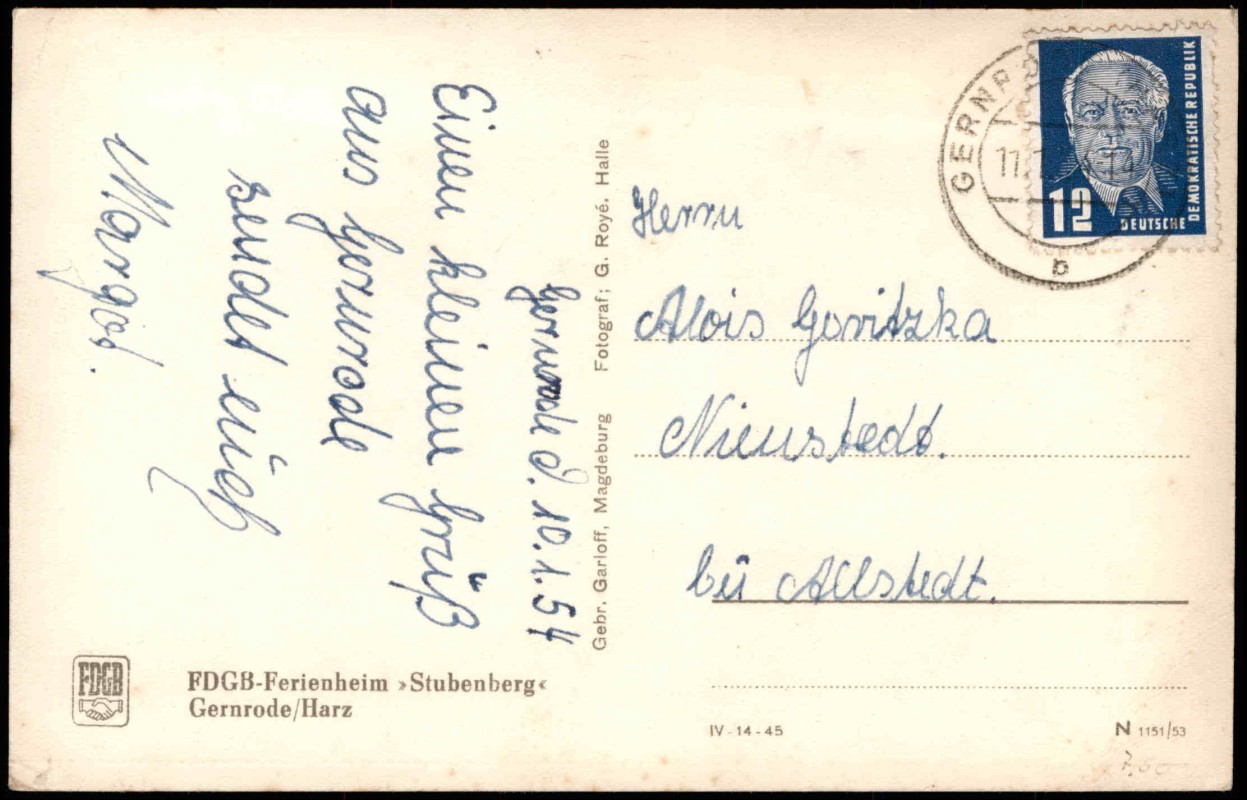 Gernrode d. 10.1.54
Einen kleinen Grüß
aus Gernrode
sendet euch
Margot.
Gebr. Garloff, Magdeburg Fotograf: G. Royé, Halle
GERNRO
11.
b
12
DEUTSCHE
DEMOKRATISCHE REPUBLIK
Herrn
Alois Govitzka
Nienstedt.
bei Allstedt.
FDGB
FDGB-Ferienheim »Stubenberg«
Gernrode/Harz
IV - 14 - 45
N 1151/53
7,50